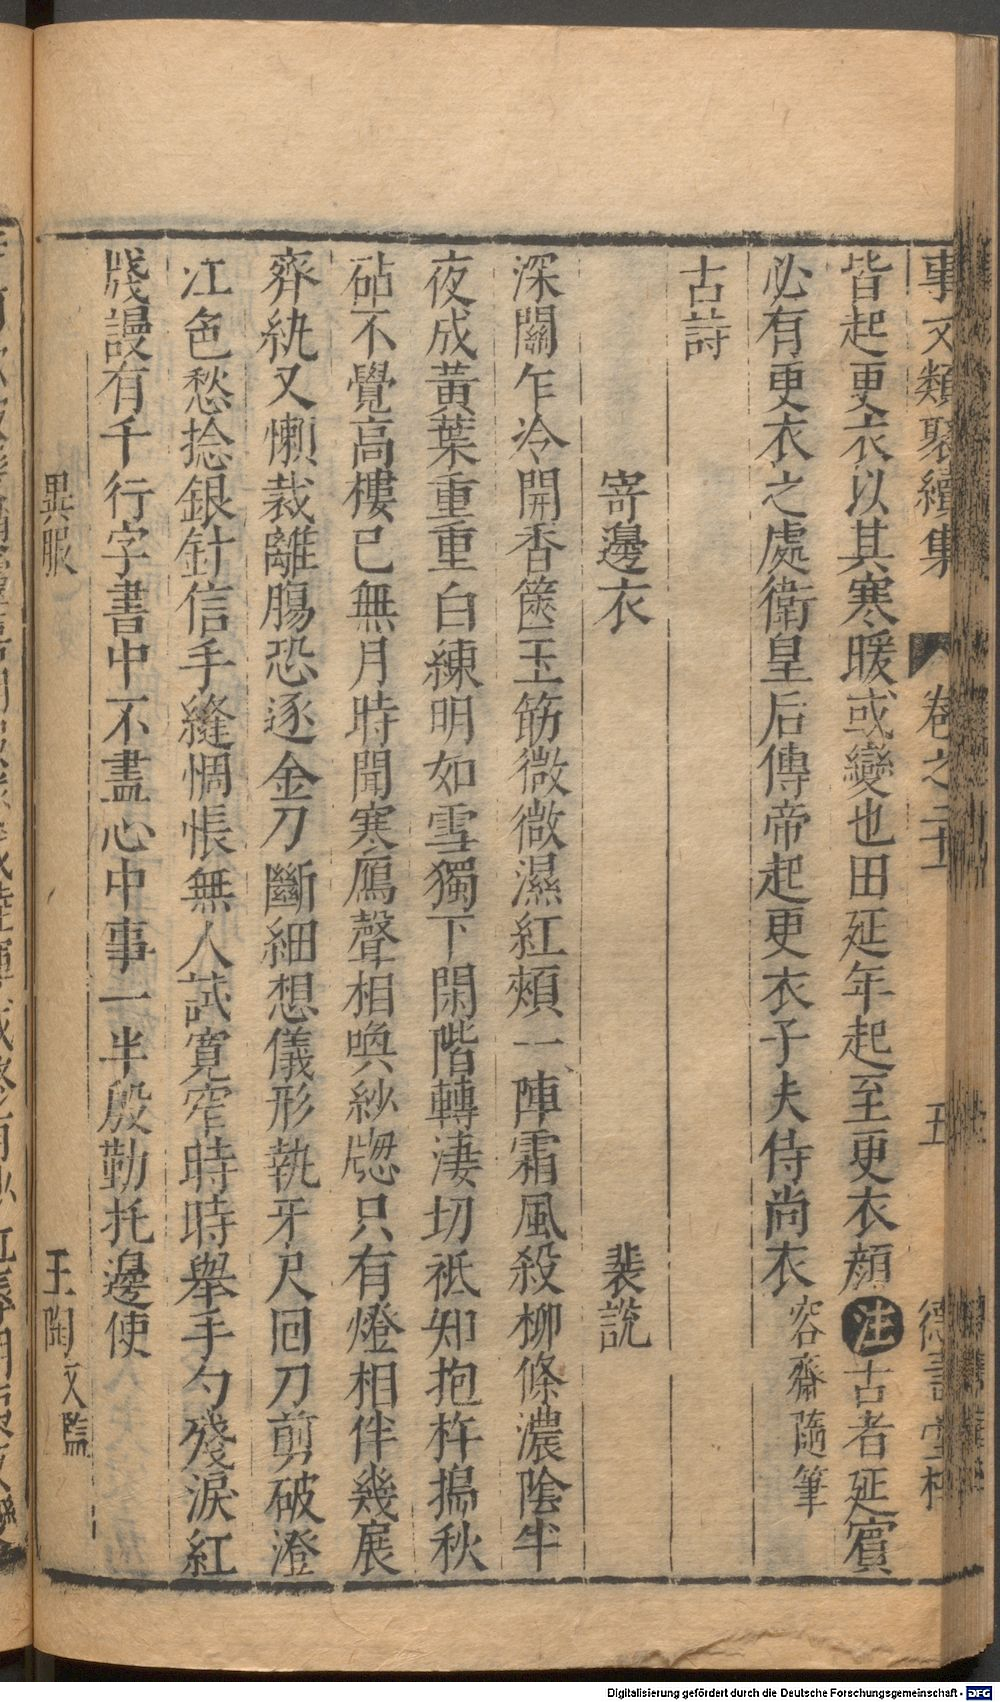 事文類聚續集 卷之二十 五 德壽堂梓
皆起更衣以其寒暖或變也田延年起至更衣顏注古者延賓
必有更衣之處衛皇后傳帝起更衣子夫侍尚衣容齋隨筆
古詩
寄邊衣 裴說
深闗乍冷開香篋玉筋微微濕紅頰一陣霜風殺柳條濃陰半
夜成黃葉重重白練明如雪獨下閑階轉淒切祗知抱杵搗秋
砧不覺高樓已無月時聞寒鴈聲相喚紗牕只有燈相伴幾展
齊紈又懶裁離腸恐逐金刀斷細想儀形執牙尺囘刀剪破澄
江色愁捻銀針信手縫惆悵無人試寬窄時時舉手勺殘淚紅
牋謾有千行字書中不盡心中事一半殷勤托邊使
異服 王陶文鑑
Digitalisierung gefördert durch die Deutsche Forschungsgemeinschaft - DFG